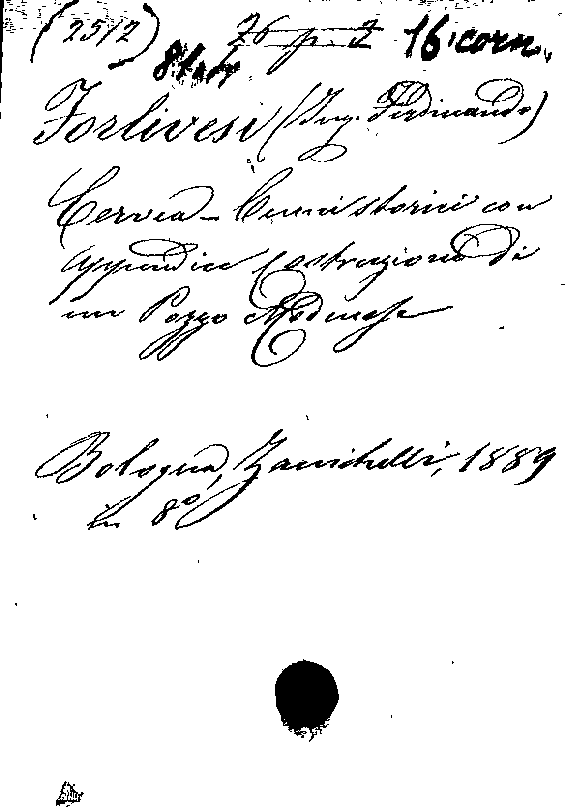 (2512) 26 p. 2 16. corn.
Forlivesi (Ing. Ferdinando)
Cervia - Cenni storici con
appendice Costruzione di
un Pozzo Modenese
Bologna, Zanichelli, 1889
in 8º